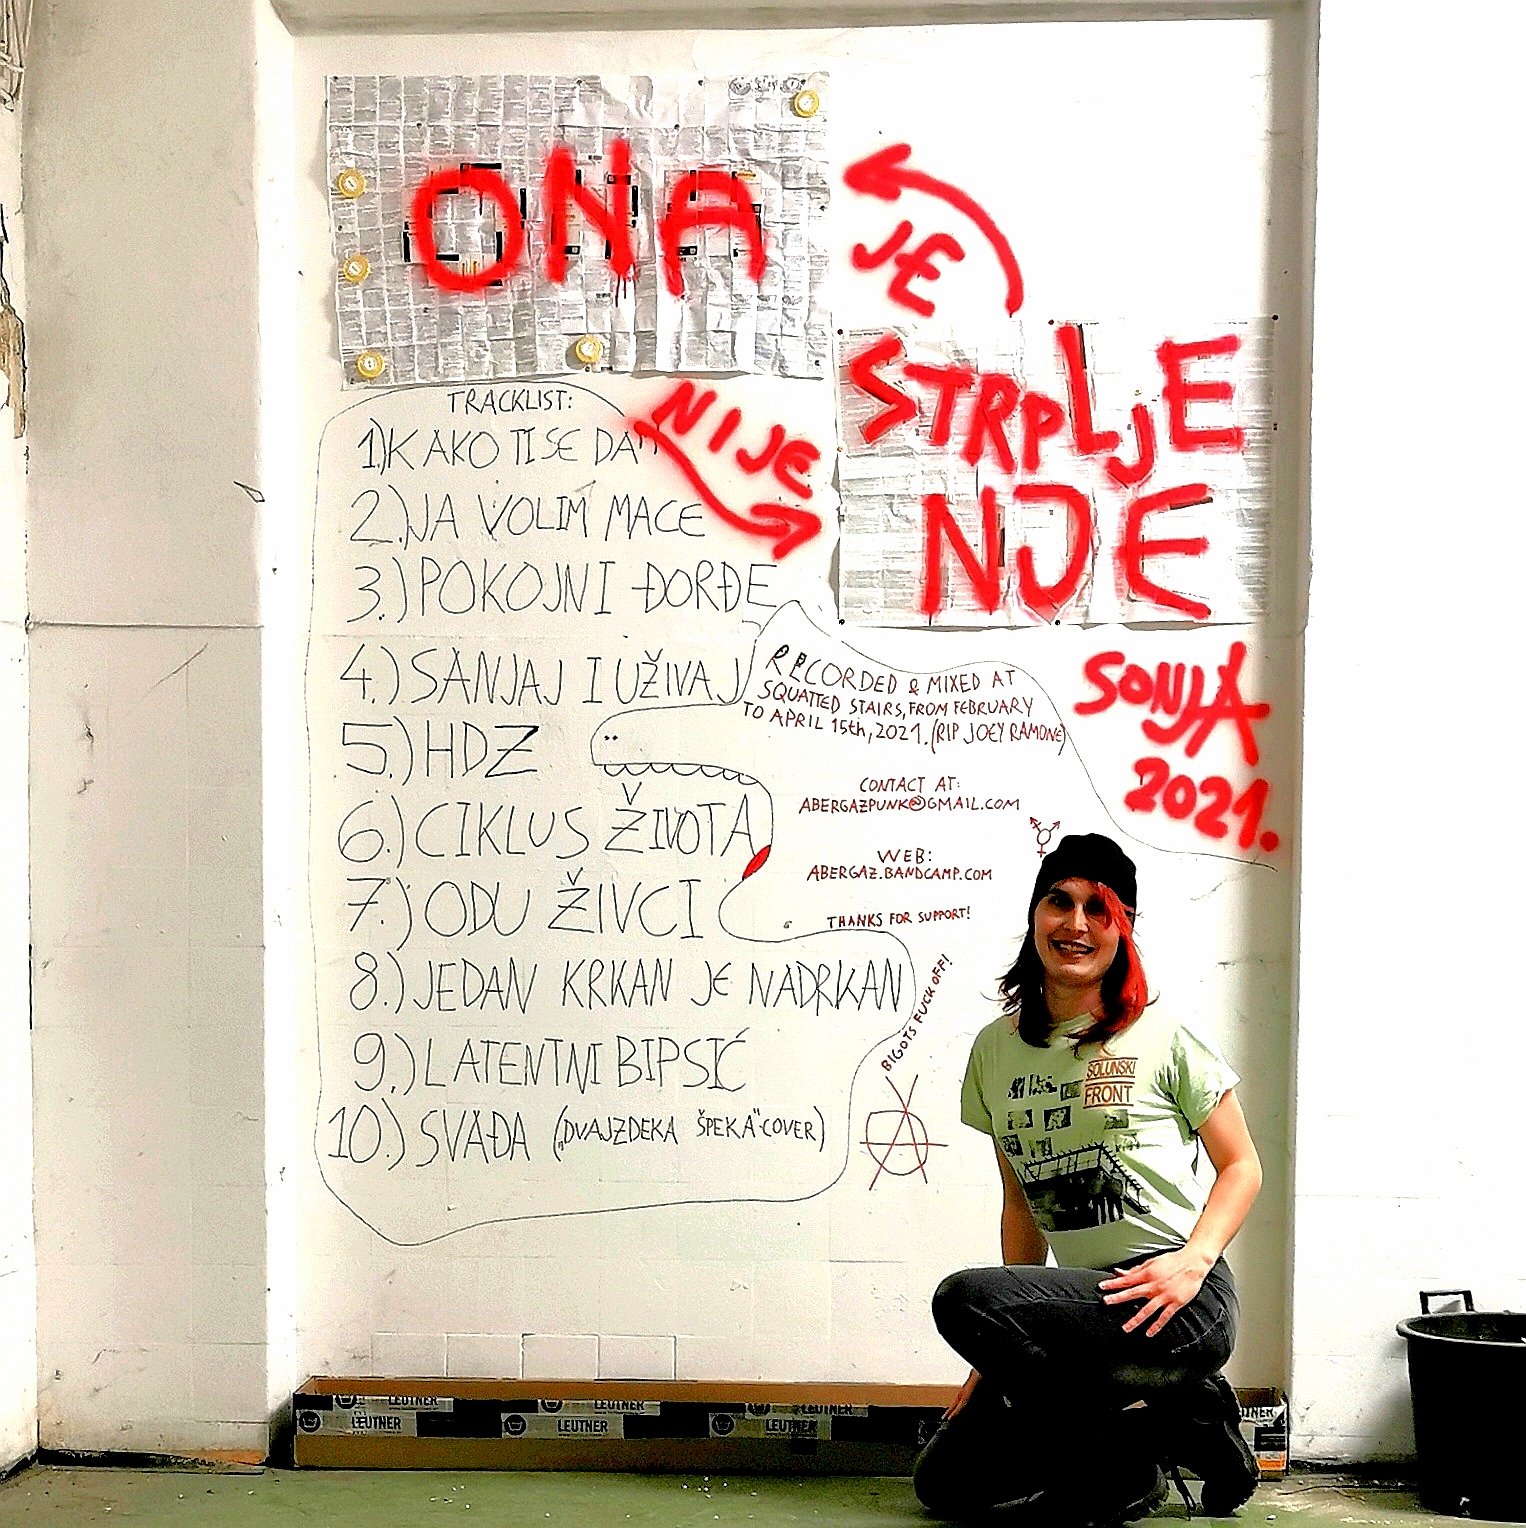 ONA
JE
STRPLJE
NJE
NIJE
SONJA
2021.
TRACKLIST:
1.)KAKO TI SE DA
2.)JA VOLIM MACE
3.)POKOJNI ĐORĐE
4.)SANJAJ I UŽIVAJ
5.)HDZ
6.)CIKLUS ŽIVOTA
7.)ODU ŽIVCI
8.)JEDAN KRKAN JE NADRKAN
9.)LATENTNI BIPSIĆ
10.)SVAĐA („DVAJZDEKA ŠPEKA"-COVER)
RECORDED & MIXED AT
SQUATTED STAIRS, FROM FEBRUARY
TO APRIL 15th, 2021. (RIP JOEY RAMONE)
CONTACT AT:
ABERGAZPUNK@GMAIL.COM
WEB:
ABERGAZ.BANDCAMP.COM
THANKS FOR SUPPORT!
BIGOTS FUCK OFF!
SOLUNSKI
FRONT
LEUTNER
LEUTNER
LEUTNER
LEUTNER
LEUTNER